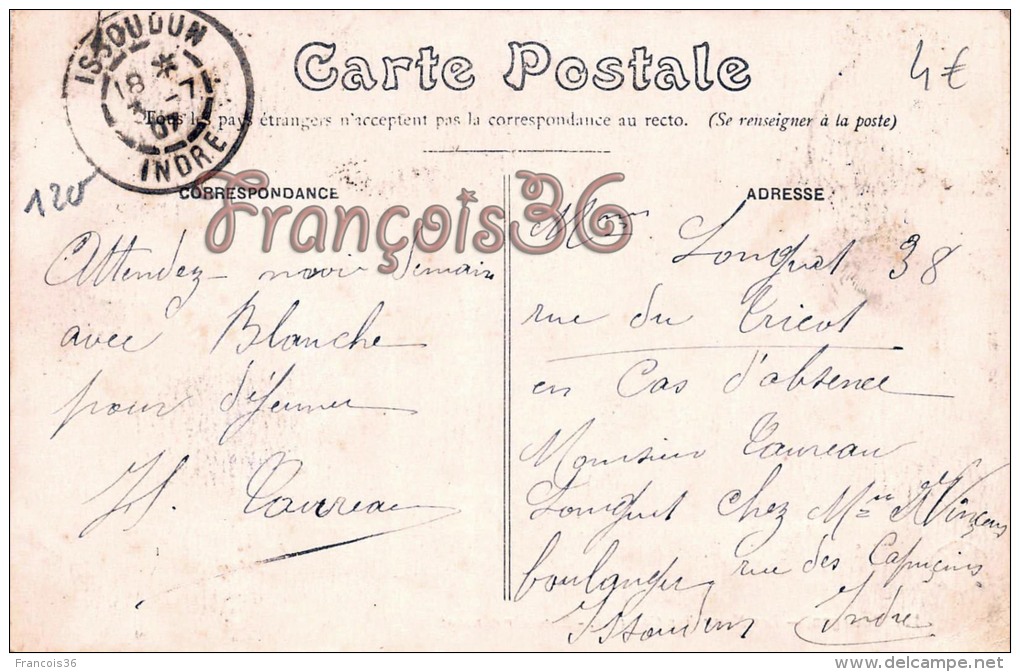 ISSOUDUN
18 * -7
07
INDRE
Carte Postale
4€
Tous les pays étrangers n'acceptent pas la correspondance au recto. (Se renseigner à la poste)
120
CORRESPONDANCE
François36
Attendez-nous demain
avec Blanche
pour déjeuner
H. Taureau
ADRESSE
Longuet 38
rue du Tricot
en Cas d'absence
Monsieur Taureau
Longuet chez Mr
boulanger, rue des Capucins
Issoudun Indre
Francois36
http://www.delcampe.net